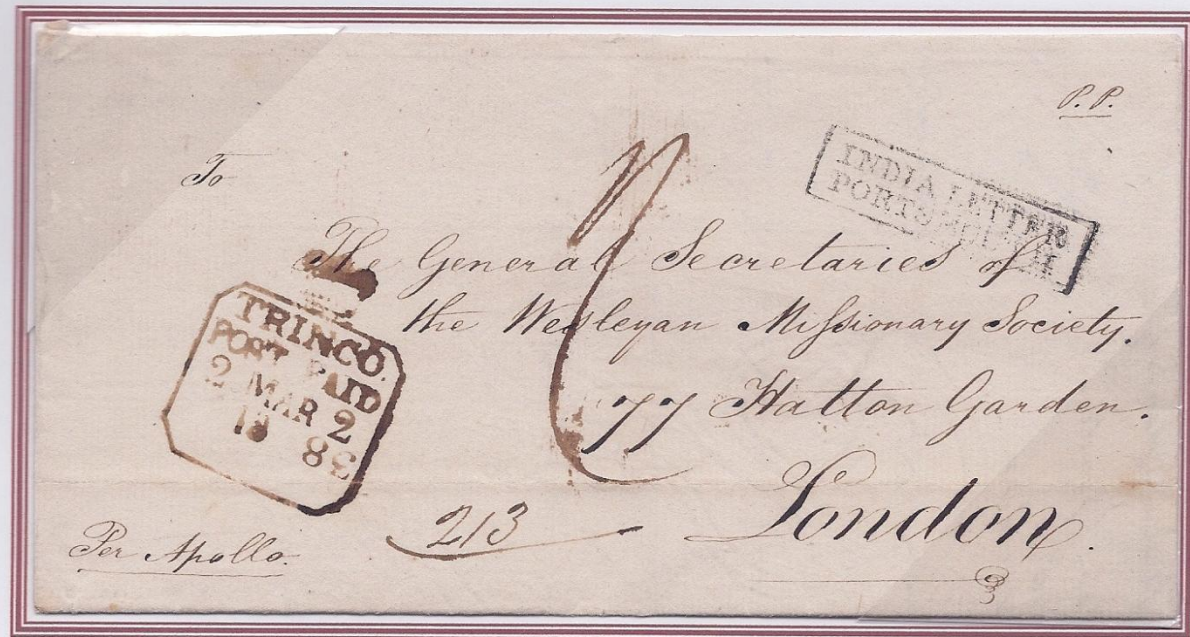 P. P.
To
INDIA LETTER
PORTSMOUTH
The General Secretaries of
the Wesleyan Missionary Society.
77 Hatton Garden.
London.
TRINCO.
POST PAID
2 MAR 2
2/3
Per Apollo.